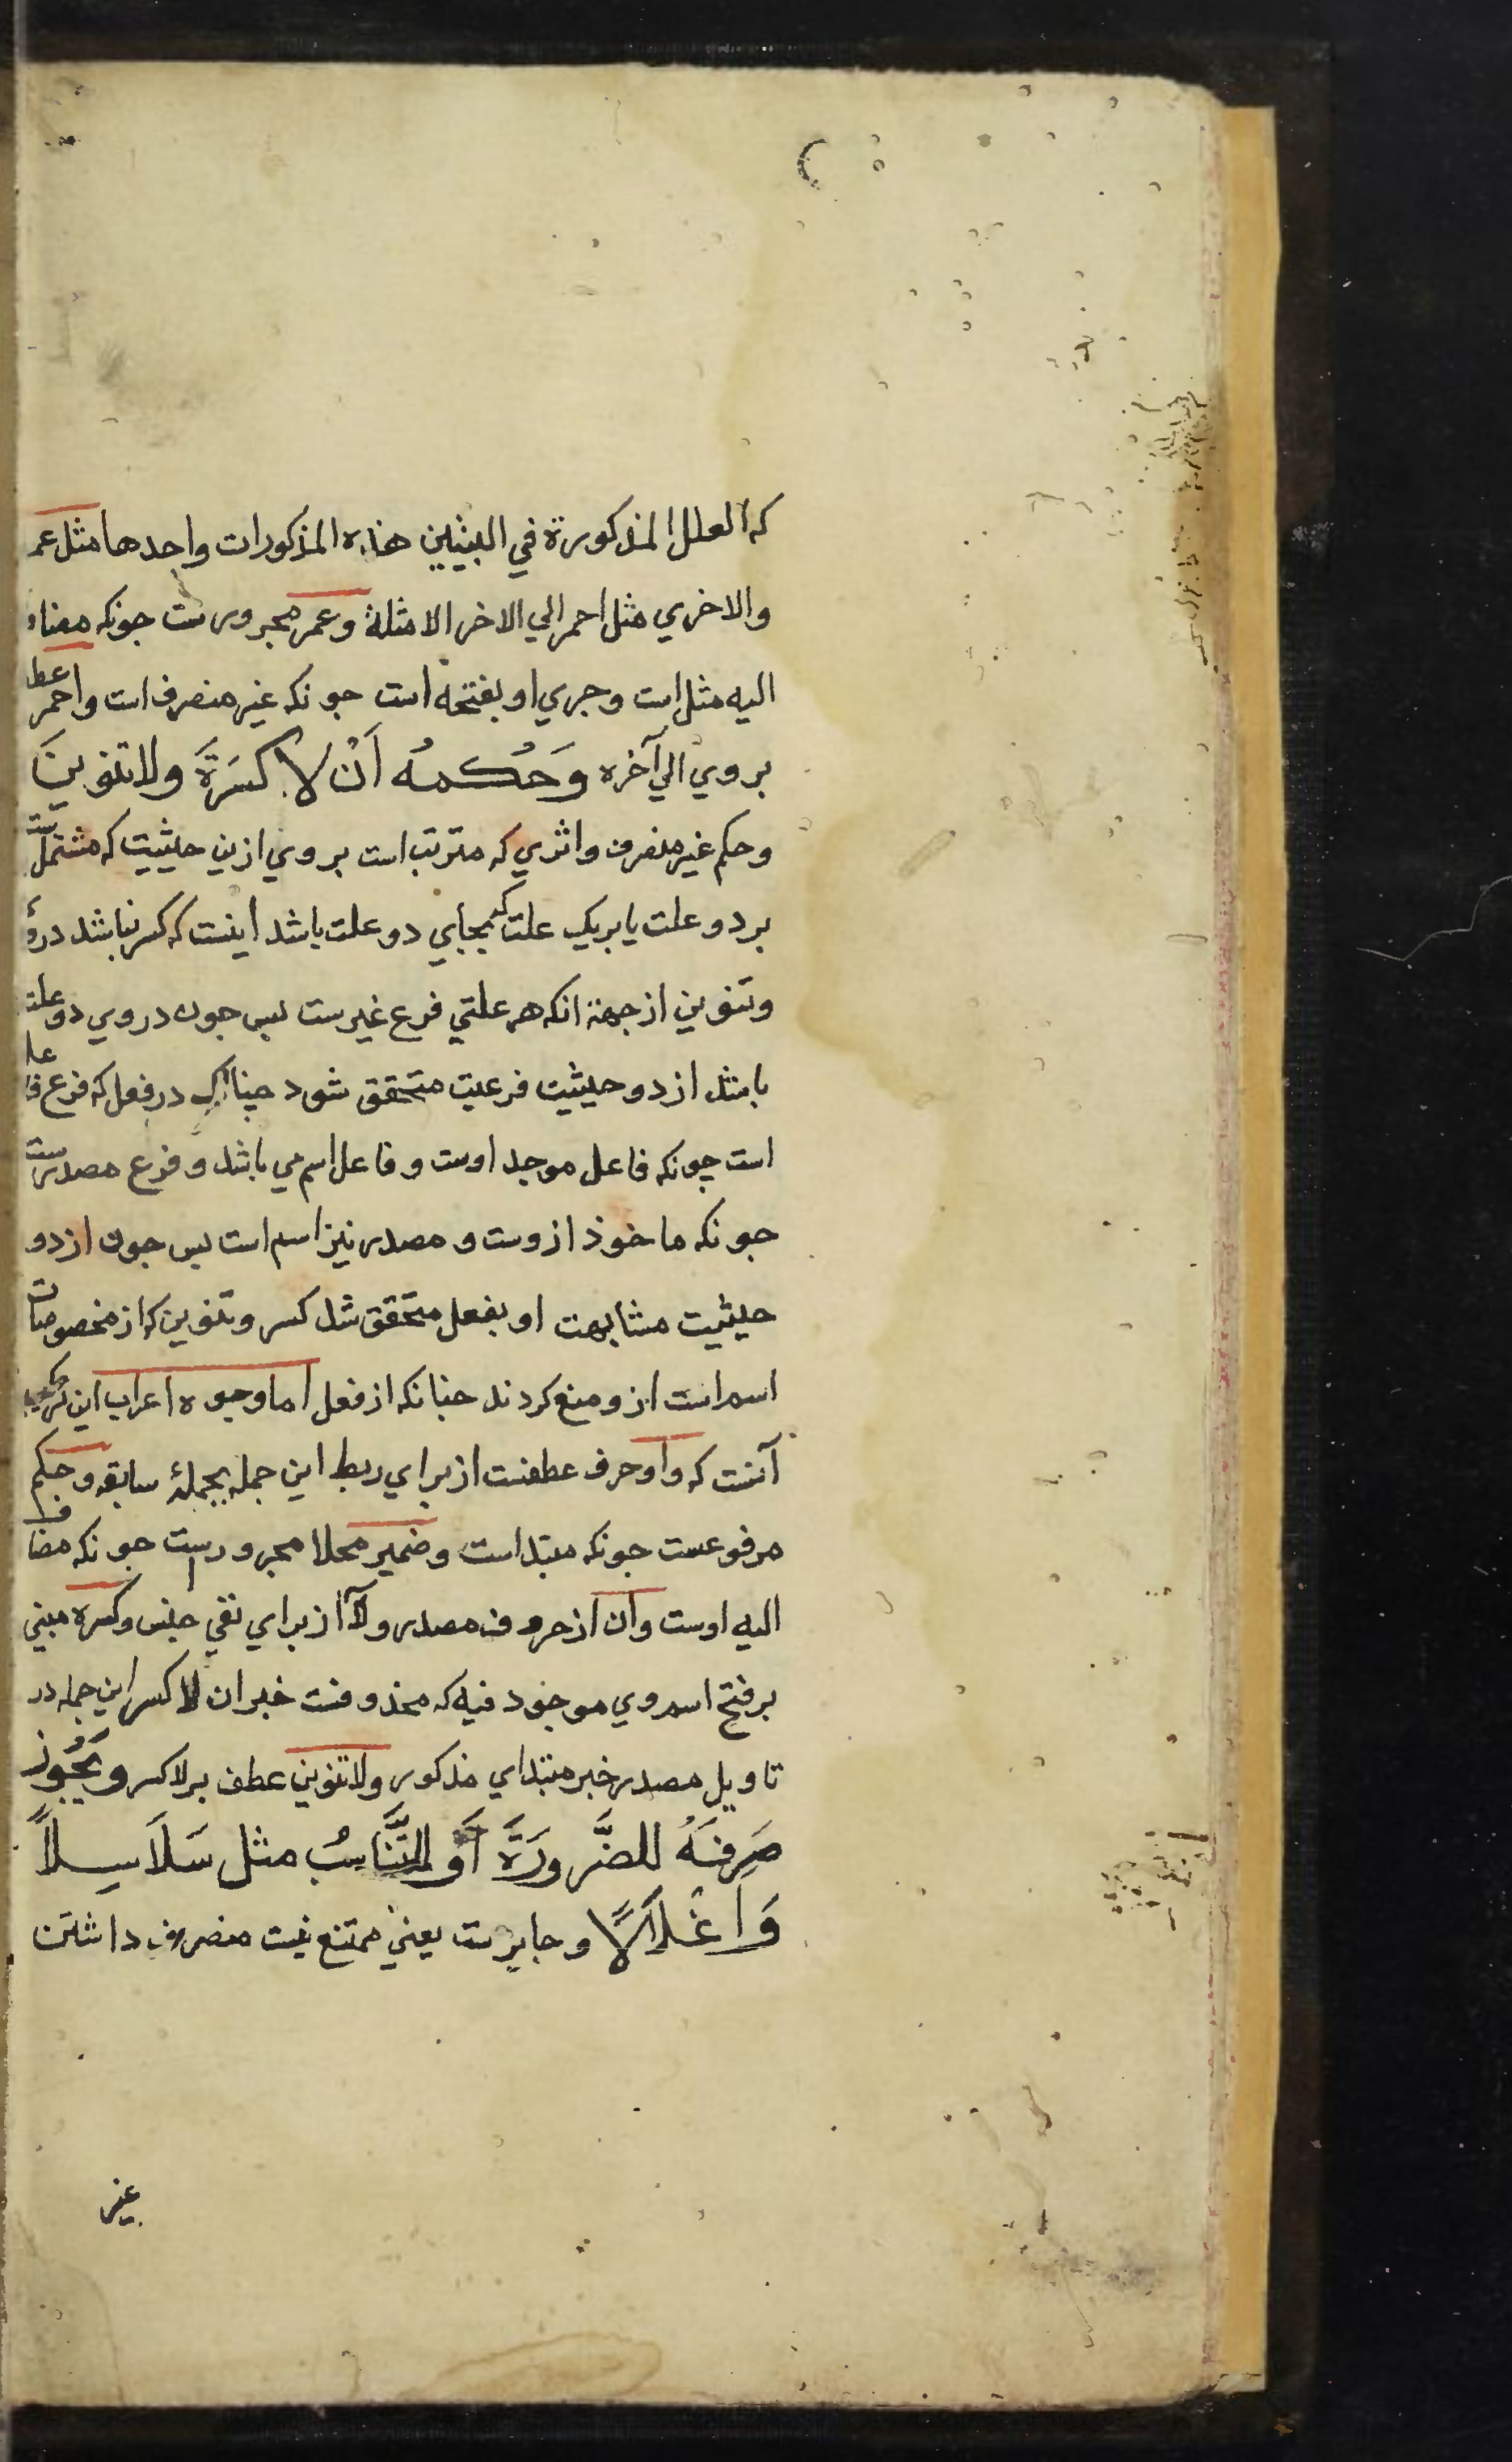 كه العلل المذكورة في البيتين هذه المذكورات واحدها مثل عمر
والاخري مثل احمر الي الاخر الامثلة وعمر مجرورست جونكه مضاف
اليه مثل است وجري او بفتحه است جونكه غير منصرف است واحمر عطف
بروي الي آخره وَحُكمُه اَنْ لا كسَرَةَ ولا تنوينَ
وحكم غير منصرف واثري كه مترتب است بروي ازين حيثيت كه مشتمل است
بر دو علت يا بريك علت كه بجاي دو علت باشد اينست كه كسر نباشد درو
وتنوين از جهة انكه هر علتي فرع غيرست پس جون دروي دو علت
باشد از دو حيثيت فرعيت متحقق شود جنانكه در فعل كه فرع فاعل
است چونكه فاعل موجد اوست و فاعل اسم مي باشد و فرع مصدرست
جونكه ماخوذ ازوست و مصدر نيز اسم است پس جون از دو
حيثيت مشابهت او بفعل متحقق شد كسر وتنوين كه از مخصوصات
اسم است ازو منع كردند جنانكه از فعل اما وجوه اعراب اين تركيب
آنست كه واو حرف عطفست از براي ربط اين جمله بجملهٔ سابقه وحكم
مرفوعست جونكه مبتداست وضمير محلا مجرورست جونكه مضاف
اليه اوست وان از حروف مصدر ولا از براي نفي جنس وكسره مبني
بر فتح اسم وي موجود فيه كه محذوفست خبر ان لا كسر اين جمله در
تاويل مصدر خبر مبتداي مذكور ولا تنوين عطف بر لا كسر ويَجُوز
صَرفَهُ للضَّرورَةَ اَو للتَّنَاسُبُ مثل سَلاَسِلاً
وَاَغْلاَلاً وجايزست يعني ممتنع نيست منصرف داشتن
غير